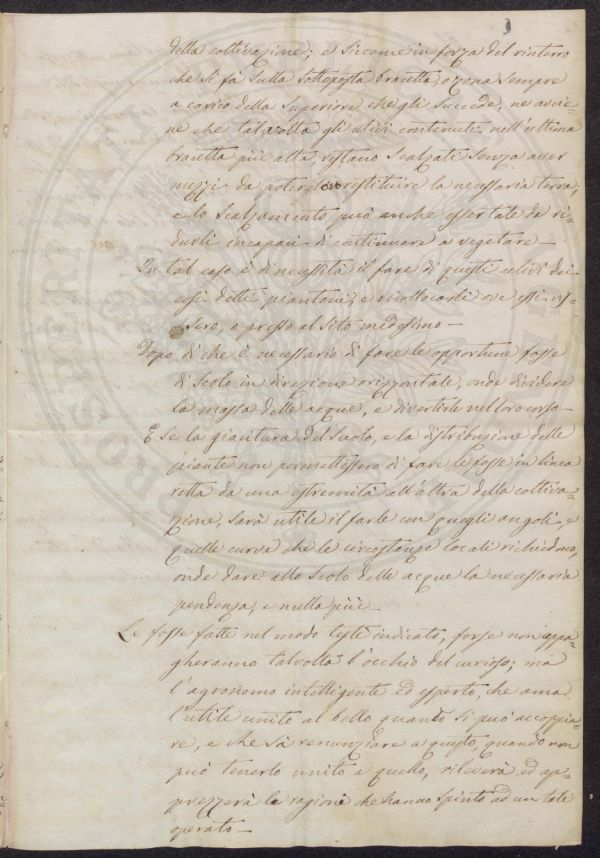 3
della coltivazione; e siccome in forza del rinterro
che si fà sulla sottoposta bracetta, o zona sempre
a carico della superiore che gli succede, ne avvie-
ne che talvolta gli ulivi contenuti nell'ultima
bracetta più alta, restano scalzati senza aver
mezzi da poterlo restituire la necessaria terra,
e lo scalzamento può anche esser tale da ri-
durli incapaci di continuare a vegetare —
In tal caso è di necessità il fare di questi ulivi dei
così detti piantoni, e ricollocarli ove essi vis-
sero, o presso al sito medesimo —
Dopo di che è necessario di fare le opportune fosse
di scolo in direzione orizzontale, onde dividere
la massa delle acque, e divertirle nel loro corso —
E se la giacitura del suolo, e la distribuzione delle
piante non permettessero di fare le fosse in linea
retta da una estremità all'altra della coltiva-
zione, sarà utile il farle con quegli angoli, e
quelle curve che le circostanze locali richiedono,
onde dare allo scolo delle acque la necessaria
pendenza, e nulla più —
Le fosse fatte nel modo testè indicato, forse non appa-
gheranno talvolta l'occhio del curioso; ma
l'agronomo intelligente ed esperto, che ama
l'utile unito al bello quando si può accoppia-
re, e che sà renunziare a questo, quando non
può tenerlo unito a quello, rileverà ed ap-
prezzerà le ragioni che hanno spinto ad un tale
operato —